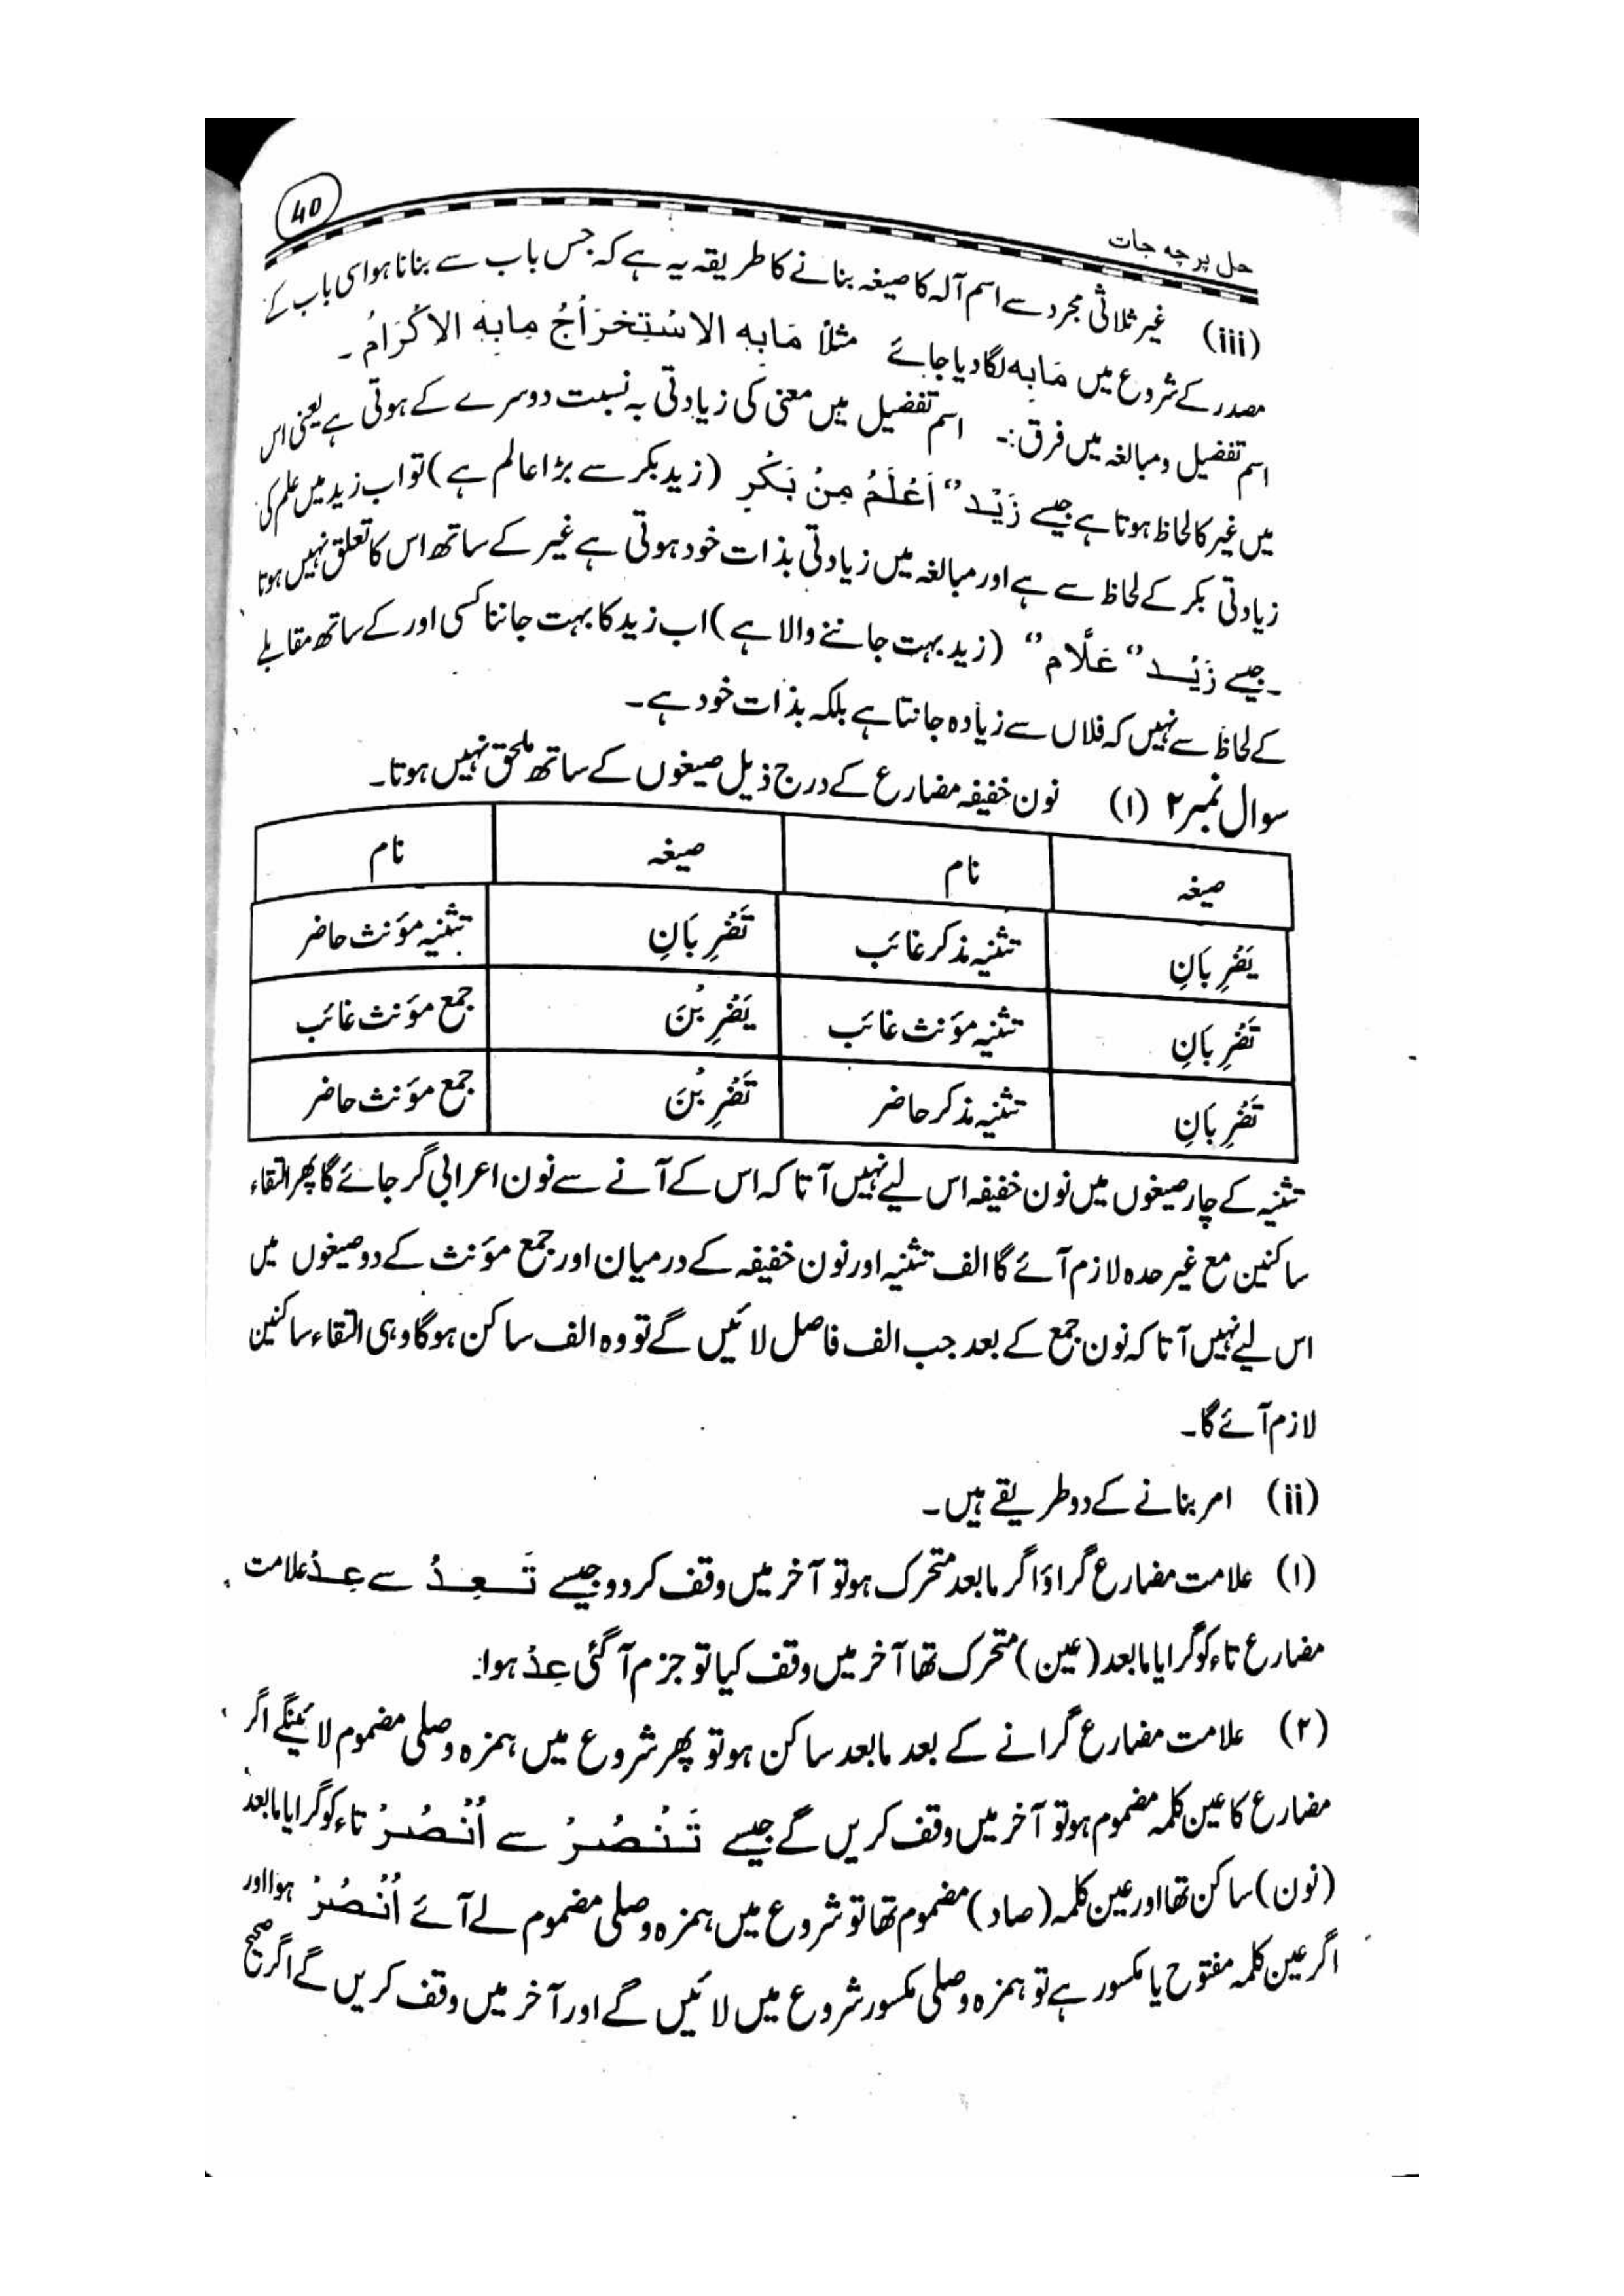 حل پرچہ جات
40
(iii) غیر ثلاثی مجرد سے اسم آلہ کا صیغہ بنانے کا طریقہ یہ ہے کہ جس باب سے بنانا ہو اسی باب کے
مصدر کے شروع میں مَابِہ لگا دیا جائے مثلاً مَابِهِ الاسْتِخرَاجُ مِابِهِ الاكْرَامُ ۔
اسم تفضیل و مبالغہ میں فرق:۔ اسم تفضیل میں معنی کی زیادتی بہ نسبت دوسرے کے ہوتی ہے یعنی اس
میں غیر کا لحاظ ہوتا ہے جیسے زَيْد'' اَعْلَمُ مِنْ بَكْرِ (زید بکر سے بڑا عالم ہے) تو اب زید میں علم کی
زیادتی بکر کے لحاظ سے ہے اور مبالغہ میں زیادتی بذات خود ہوتی ہے غیر کے ساتھ اس کا تعلق نہیں ہوتا
۔ جیسے زَيْد'' عَلَّام'' (زید بہت جاننے والا ہے) اب زید کا بہت جاننا کسی اور کے ساتھ مقابلے
کے لحاظ سے نہیں کہ فلاں سے زیادہ جانتا ہے بلکہ بذات خود ہے۔
سوال نمبر ۲ (۱) نون خفیفہ مضارع کے درج ذیل صیغوں کے ساتھ ملحق نہیں ہوتا۔
صیغہ نام صیغہ نام
يَضْرِبَانِ تثنیہ مذکر غائب تَضْرِبَانِ تثنیہ مؤنث حاضر
تَضْرِبَانِ تثنیہ مؤنث غائب يَضْرِبْنَ جمع مؤنث غائب
تَضْرِبَانِ تثنیہ مذکر حاضر تَضْرِبْنَ جمع مؤنث حاضر
تثنیہ کے چار صیغوں میں نون خفیفہ اس لیے نہیں آتا کہ اس کے آنے سے نون اعرابی گر جائے گا پھر التقاء
ساکنین مع غیر حدہ لازم آئے گا الف تثنیہ اور نون خفیفہ کے درمیان اور جمع مؤنث کے دو صیغوں میں
اس لیے نہیں آتا کہ نون جمع کے بعد جب الف فاصل لائیں گے تو وہ الف ساکن ہوگا وہی التقاء ساکنین
لازم آئے گا۔
(ii) امر بنانے کے دو طریقے ہیں۔
(۱) علامت مضارع گراؤ اگر مابعد متحرک ہو تو آخر میں وقف کردو جیسے تَعِدُ سے عِدْ علامت
مضارع تاء کو گرایا مابعد (عین) متحرک تھا آخر میں وقف کیا تو جزم آگئی عِدْ ہوا۔
(۲) علامت مضارع گرانے کے بعد مابعد ساکن ہو تو پھر شروع میں ہمزہ وصلی مضموم لائینگے اگر
مضارع کا عین کلمہ مضموم ہو تو آخر میں وقف کریں گے جیسے تَنْصُرُ سے اُنْصُرْ تاء کو گرایا مابعد
(نون) ساکن تھا اور عین کلمہ (صاد) مضموم تھا تو شروع میں ہمزہ وصلی مضموم لے آئے اُنْصُرْ ہوا اور
اگر عین کلمہ مفتوح یا مکسور ہے تو ہمزہ وصلی مکسور شروع میں لائیں گے اور آخر میں وقف کریں گے اگر صحیح